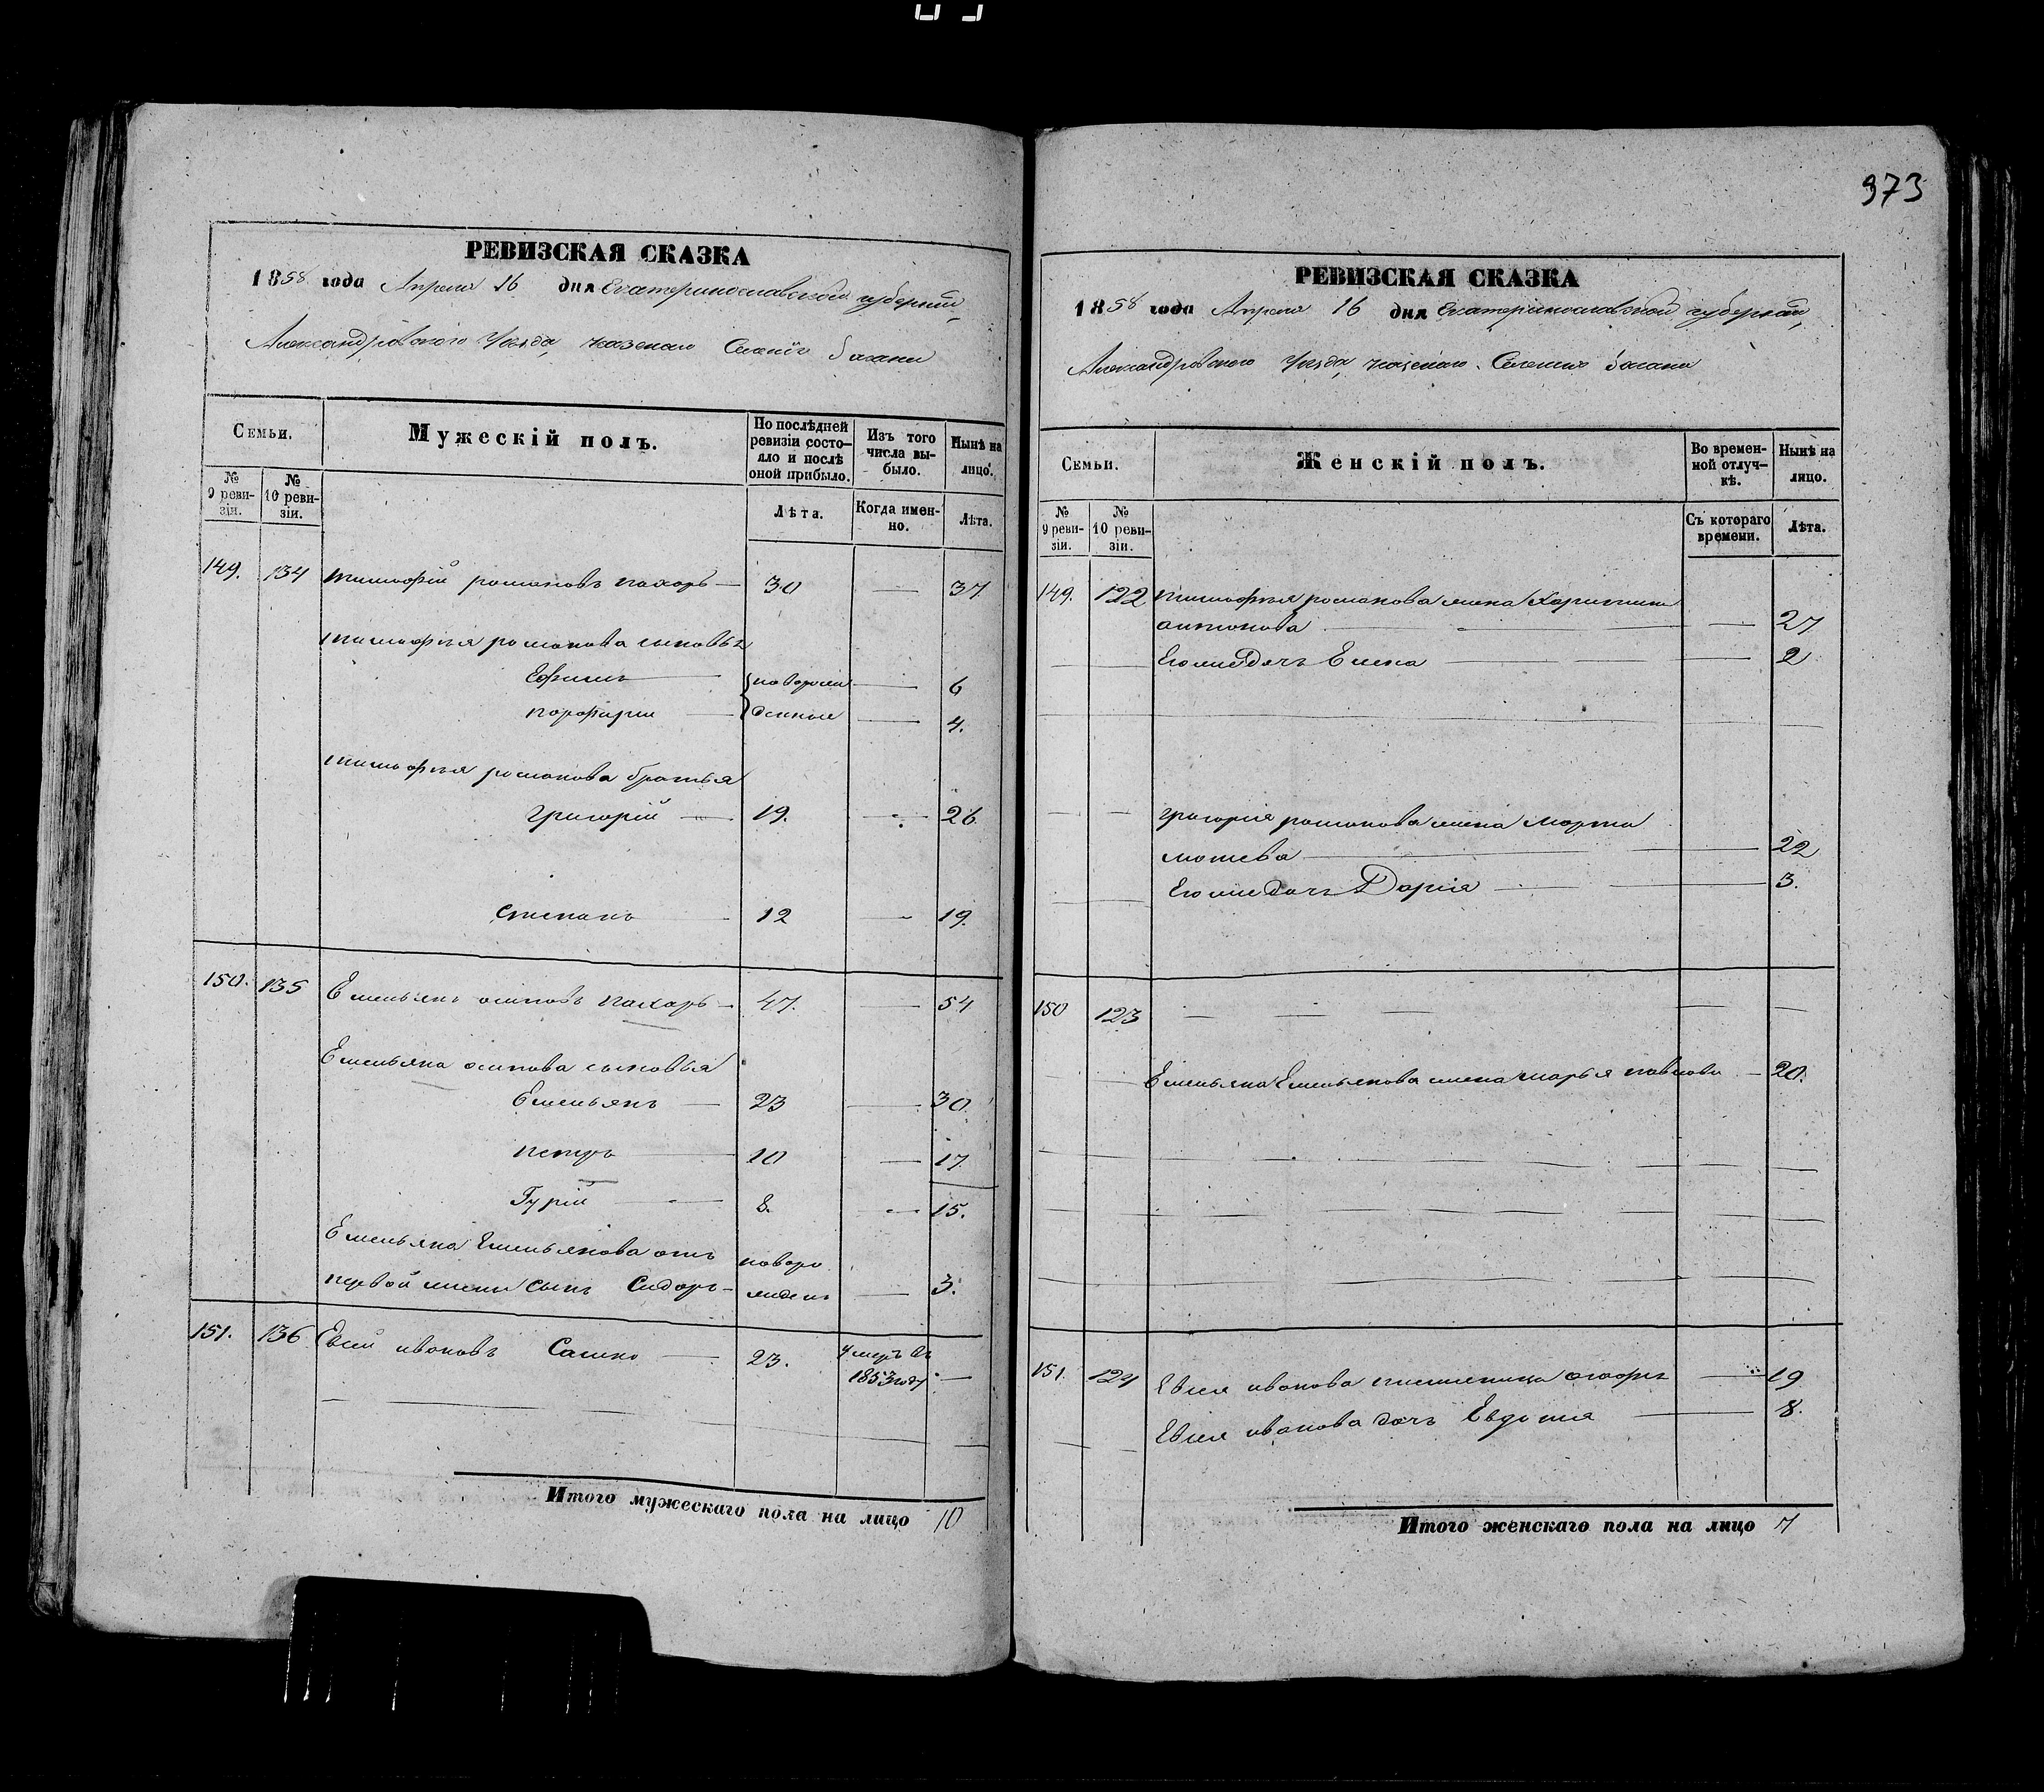 973
РЕВИЗСКАЯ СКАЗКА
1858 года Апреля 16 дня Екатеринославской губернии,
Александровского Уезда, казенаго Селенія Басани
Семьи.
Мужескій полъ.
По послѣдней ревизіи состояло и послѣ оной прибыло.
Изъ того числа выбыло.
Нынѣ на лицо.
№ 9 ревизіи.
№ 10 ревизіи.
Лѣта.
Когда именно.
Лѣта.
149. 134 тимофій романовъ пахарь — 30 — 37
тимофея романова сыновья
Ефимъ — новорож — 6
порфирій — денные — 4.
тимофея романова братья
григорій — 19. — 26.
степанъ — 12 — 19.
150. 135 Емельянъ осиповъ пахарь — 47. — 54
Емельяна осипова сыновья
Емельянъ — 23 — 30.
петръ — 10 — 17.
Гурій — 8. — 15.
Емельяна Емельянова отъ новоро
первой жены сынъ Сидоръ — жденъ — 3.
151. 136 Евсей ивановъ Сашко — 23. умеръ въ
1853 году —
Итого мужескаго пола на лицо 10
РЕВИЗСКАЯ СКАЗКА
1858 года Апреля 16 дня Екатеринославской губерніи,
Александровского Уезда, казенаго Селенія Басани
Семьи.
Женскій полъ.
Во временной отлучкѣ.
Нынѣ на лицо.
№ 9 ревизіи.
№ 10 ревизіи.
Съ котораго времени.
Лѣта.
149. 122 тимофея романова жена Харитина
антонова — — 27
Его же дочь Елена — — 2
григорія романова жена марта
— — 22
Его же дочь Дарія — — 3.
150 123 — — — — —
Емельяна Емельянова жена марья павлова — 20.
151. 124 Евсея иванова — 19
Евсея иванова дочь Евдокия — 8.
Итого женскаго пола на лицо 7